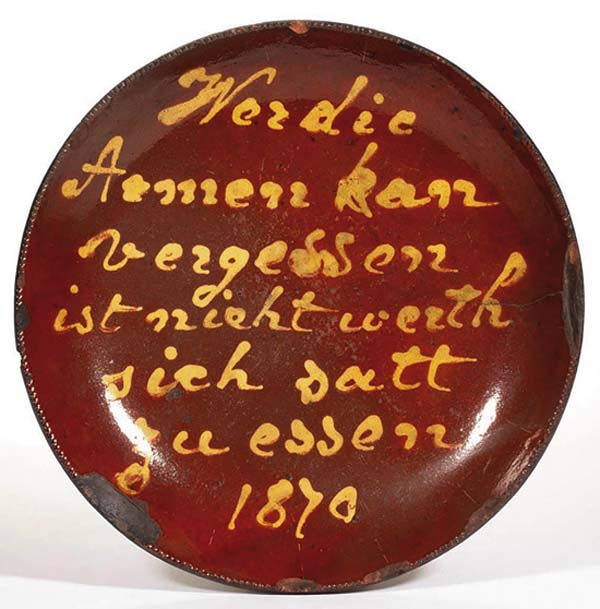 Wer die
Armen kan
vergessen
ist nicht werth
sich satt
zu essen
1870